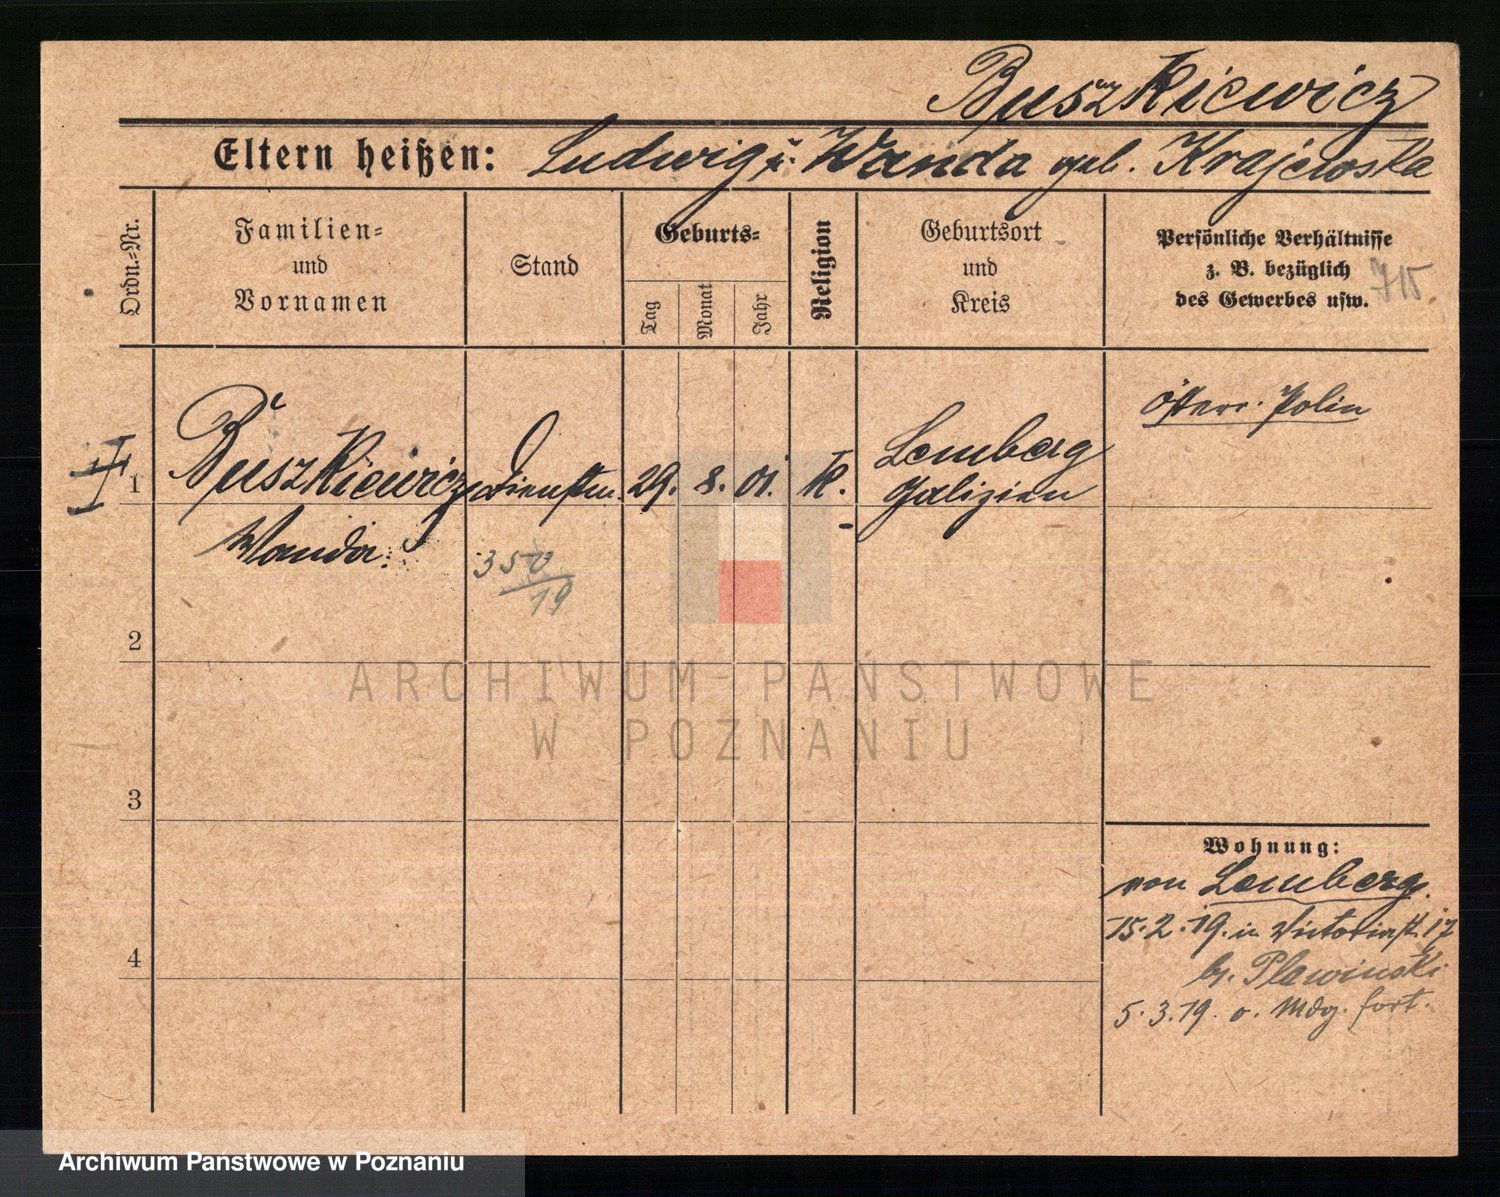 Buszkiewicz
Eltern heißen: Ludwig u. Wanda geb. Krajewska
Ordn.-Nr.
Familien-
und
Vornamen
Stand
Geburts-
Tag
Monat
Jahr
Religion
Geburtsort
und
Kreis
Persönliche Verhältnisse
z. B. bezüglich
des Gewerbes usw.
715
österr. Polin
1 Buszkiewicz Dienstm. 29. 8. 01. K. Lemberg
Galizien
Wanda
350
19
2
ARCHIWUM PAŃSTWOWE
W POZNANIU
3
4
Wohnung:
von Lemberg.
15.2.19. in Victoriastr. 17
b. Plawinski
5.3.19. o. Mdg. fort.
Archiwum Państwowe w Poznaniu